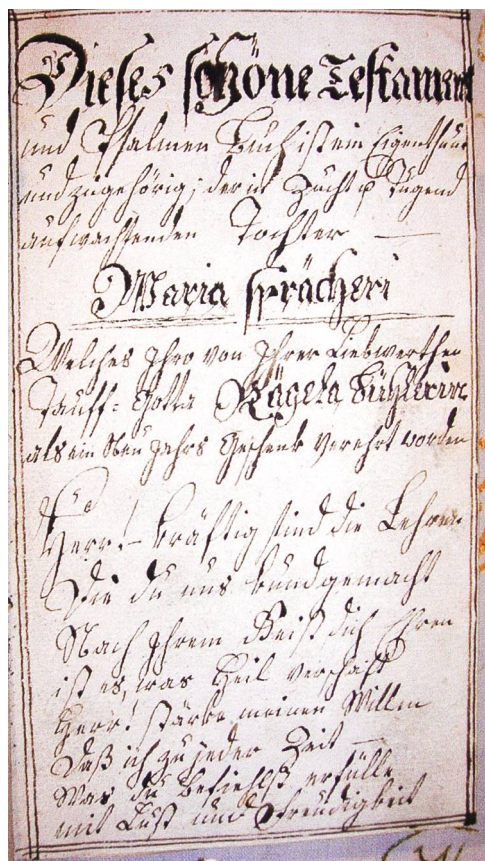 Dieses schöne Testament
und Psalmen Buch ist ein Eigenthum
und zugehörig, der in Zucht u Tugend
aufwachsenden Tochter —
Maria sprächeri
Welches Jhro von Jhrer Liebwerthen
Tauff= Gotta Rägeta
als ein Neu Jahrs Geschenk Verehrt worden
Herr! kräftig sind die Lehren
Die du uns kund gemacht
Nach Jhrem Geist dich Ehren
ist es, was Heil verschaft
Herr! stärke meinen Willen
Daß ich zu jeder Zeit —
Was du befiehlst erfülle
mit Lust und Freudigkeit